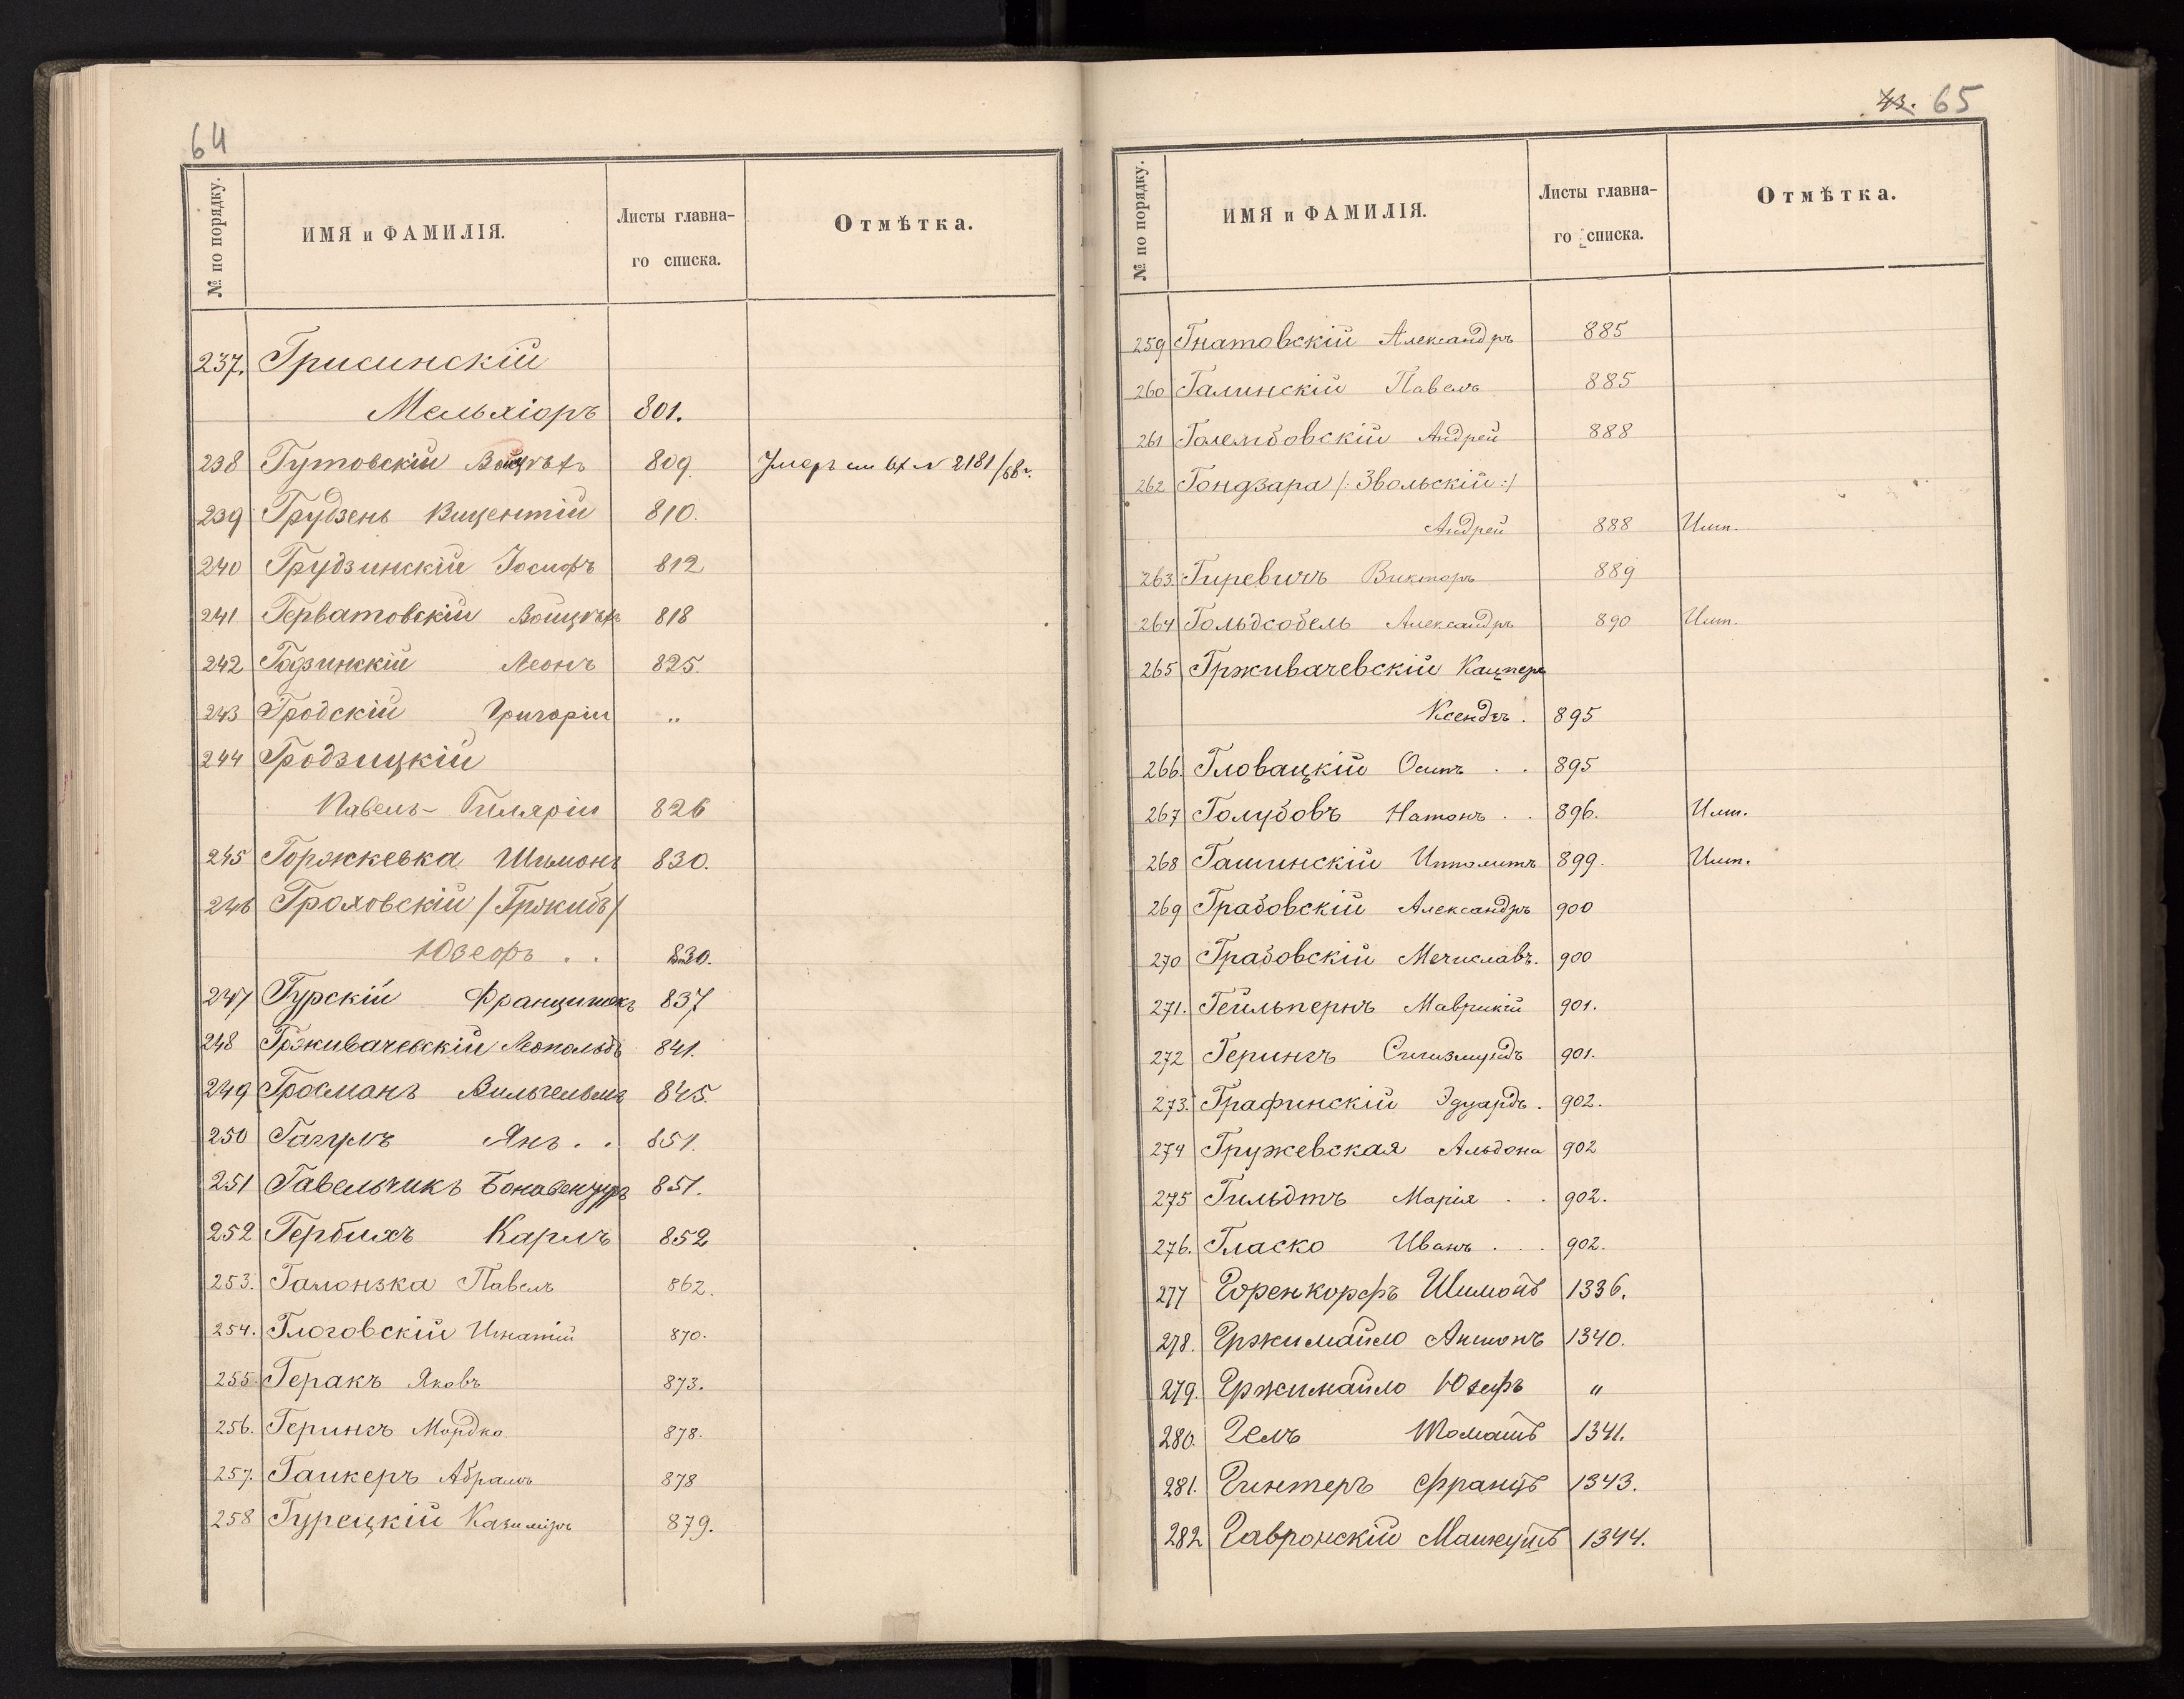 64
№ по порядку. ИМЯ и ФАМИЛІЯ. Листы главна- Отмѣтка.
го списка.
237. Грисинскій
Мельхіоръ 801.
238 Гутовскій Войцѣхъ 809 Умеръ см вх № 2181/68 г.
239 Грудзень Вицентій 810.
240 Грудзинскій Іосифъ 812
241 Герватовскій Войцѣхъ 818
242 Гадзинскій Леонъ 825.
243 Гродскій Григорій "
244 Гродзицкій
Павелъ-Гилярій 826
245 Горжкевка Шимонъ 830.
246 Гроховскій /Гржибъ/
Юзефъ . . 830.
247 Гурскій Францишекъ 837
248 Грживачевскій Леопольдъ 841.
249 Гросманъ Вильгельмъ 845.
250 Гагулъ Янъ . . 851.
251 Гавельчикъ Бонавентуръ 851.
252 Гербихъ Карлъ 852
253. Галонзка Павелъ 862.
254. Глоговскій Игнатій 870.
255. Геракъ Яковъ 873.
256. Герингъ Мордка 878.
257. Ганкеръ Абрамъ 878
258 Гурецкій Казиміръ 879.
43. 65
№ по порядку. ИМЯ и ФАМИЛІЯ. Листы главна- Отмѣтка.
го списка.
259 Гнатовскій Александръ 885
260 Галинскій Павелъ 885
261 Голембовскій Андрей 888
262 Гондзара /: Звольскій :/
Андрей 888 Имп.
263. Гиревичъ Викторъ 889
264 Гольдсобель Александръ 890 Имп.
265 Грживачевскій Кацперъ
Ксендзъ . 895
266. Гловацкій Осипъ . . 895
267 Голубовъ Натонъ . . 896. Имп.
268 Гашинскій Ипполитъ 899. Имп.
269 Грабовскій Александръ 900
270 Грабовскій Мечиславъ. 900
271. Гейльпернъ Маврикій 901.
272 Герингъ Сигизмундъ 901.
273. Графинскій Эдуардъ . 902.
274 Гружевская Альдона 902
275 Гильдтъ Марія . . 902.
276. Гласко Иванъ . . . 902.
277 Горенкорфъ Шимонъ 1336.
278. Гржимайло Антонъ 1340.
279. Гржимайло Юзефъ "
280. Гелъ Томашъ 1341.
281. Гинтеръ Францъ 1343.
282 Гавронскій Матеушъ 1344.